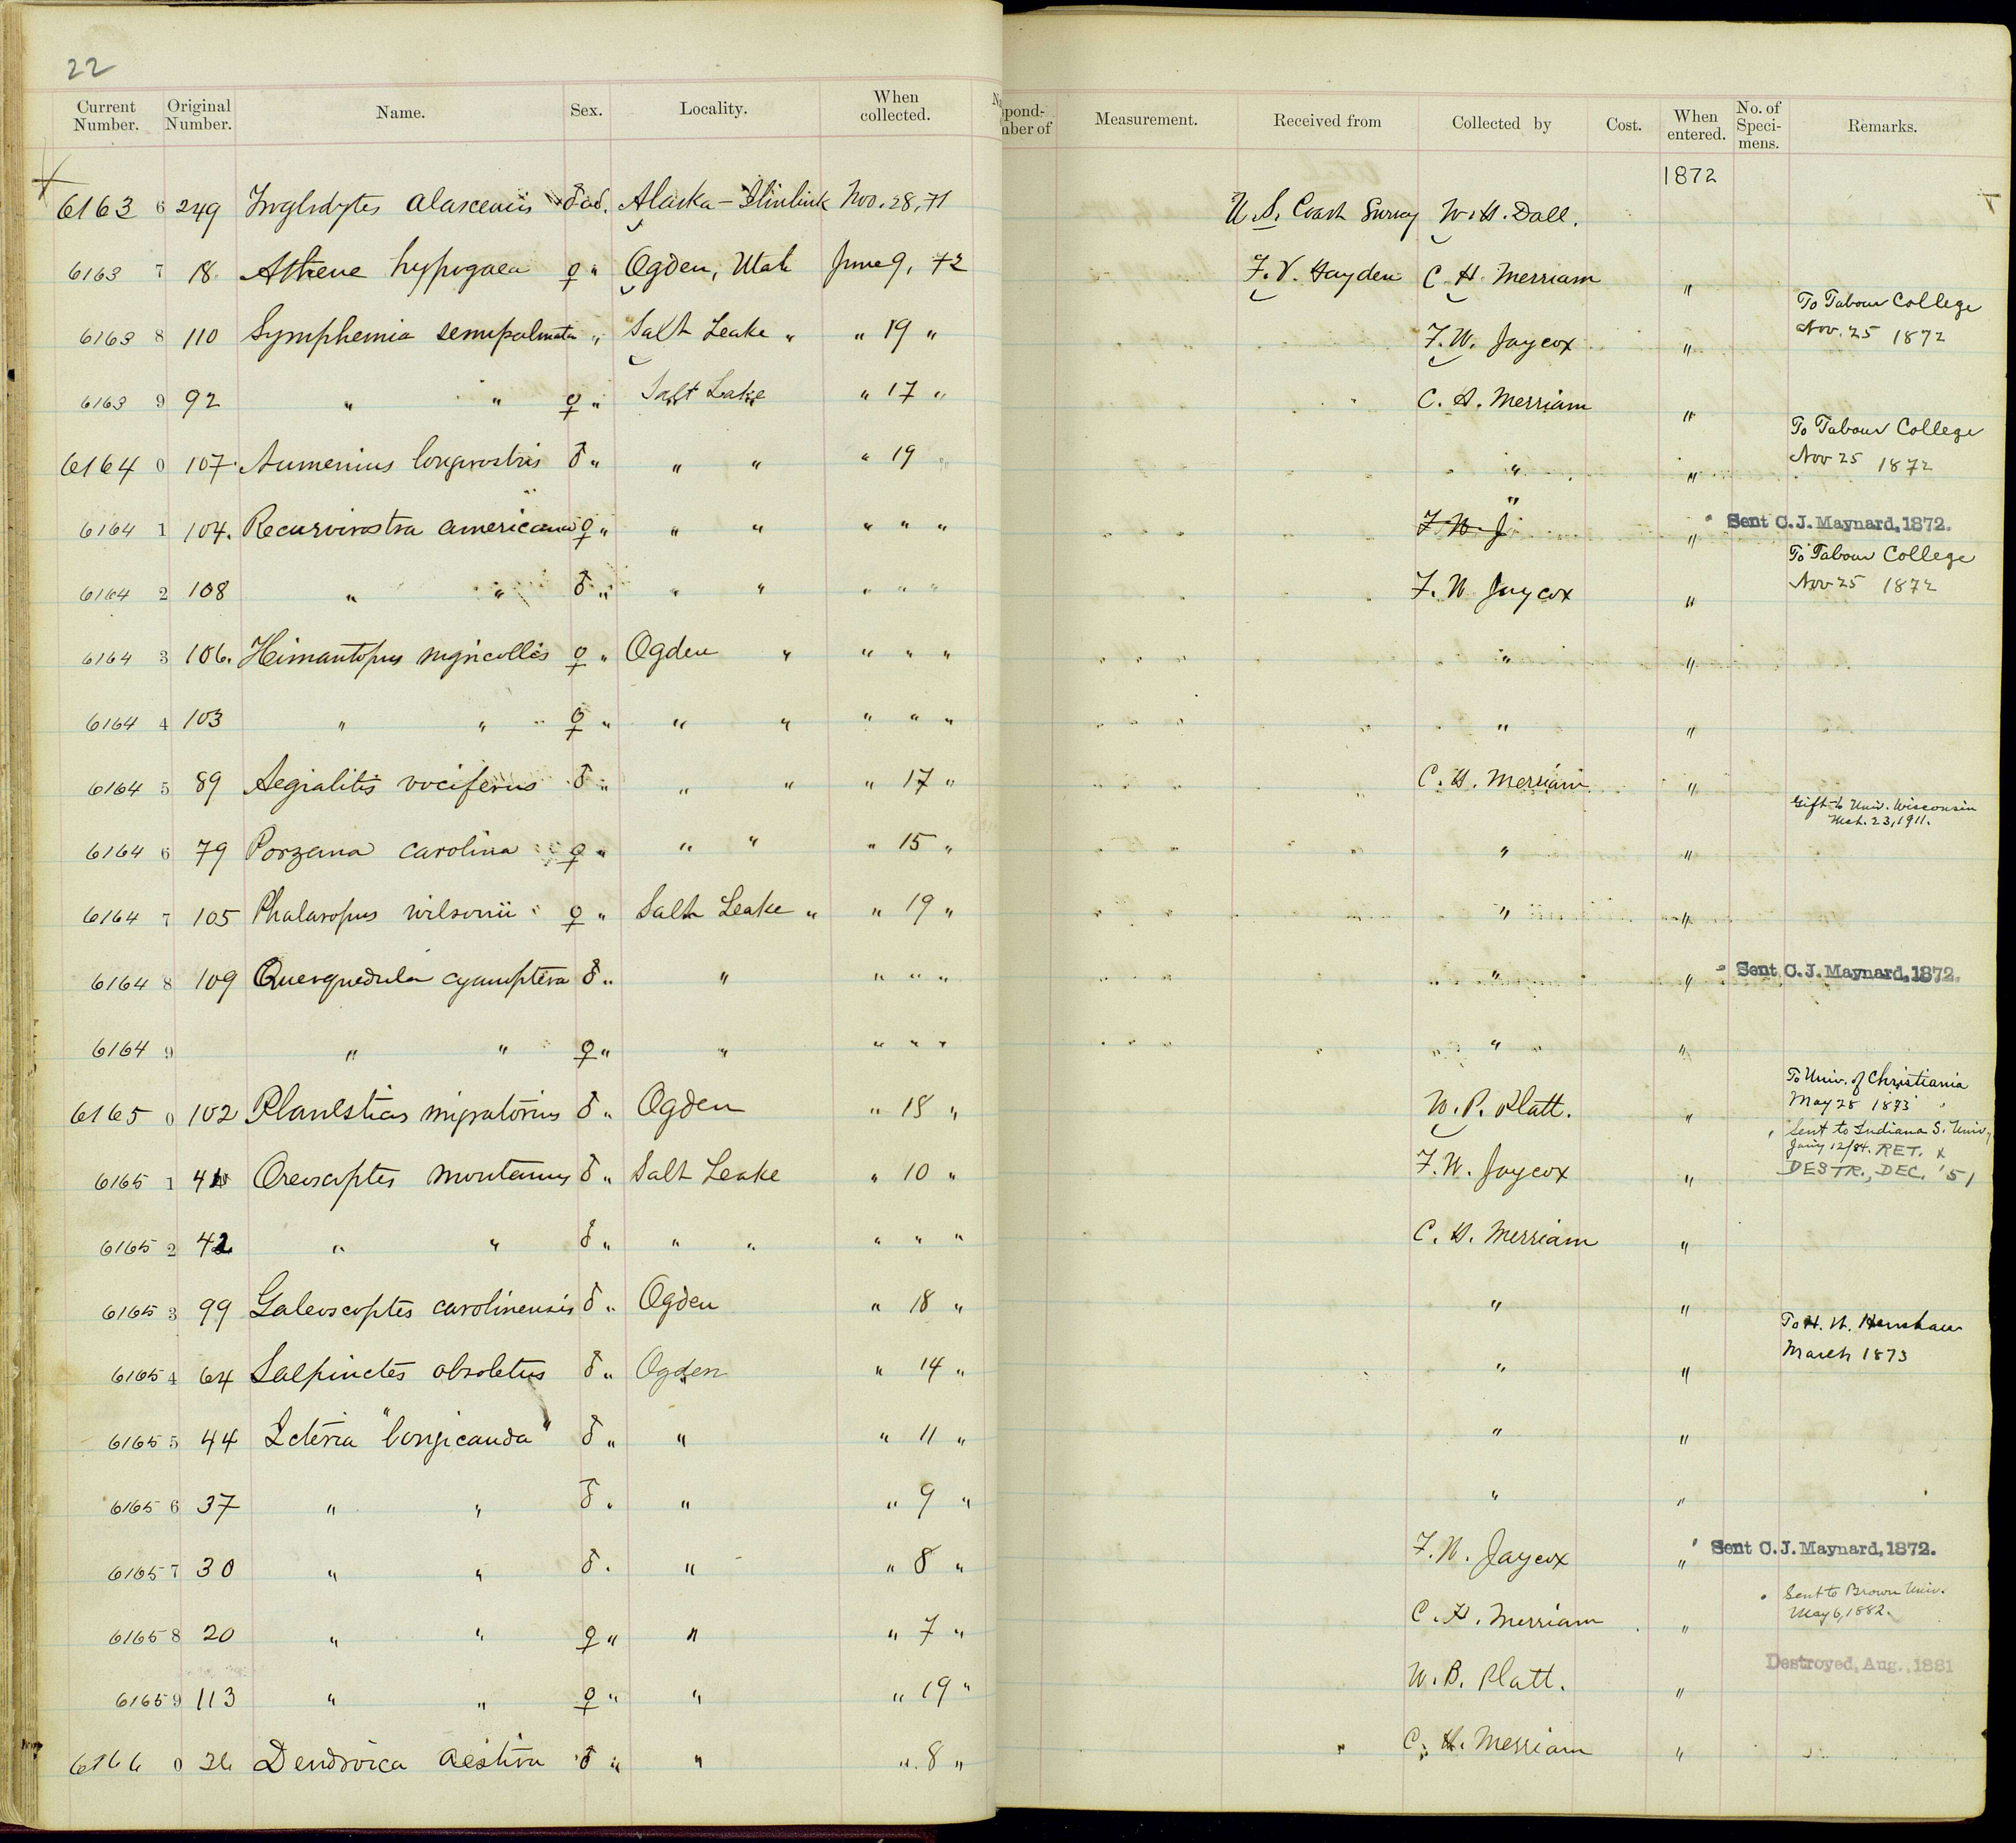 22
Current Number. Original Number. Name. Sex. Locality. When collected. pond- nber of Measurement. Received from Collected by Cost. When entered. No. of Speci- mens. Remarks.
1872
6163 6 249 Troglodytes alascensis ♂ ad. Alaska – Nov. 28, 71 U.S. Coast Survey W. H. Dall.
6163 7 18 Athene hypogaea ♀ " Ogden, Utah June 9, 72 F. V. Hayden C. H. Merriam "
6163 8 110 Symphemia semipalmata " Salt Leake " " 19 " F. W. Jaycox " To Tabour College Nov. 25 1872
6163 9 92 " " ♀ " Salt Lake " 17 " C. H. Merriam "
6164 0 107 Numenius longirostris ♂ " " " " 19 " " " To Tabour College Nov 25 1872
6164 1 104. Recurvirostra americana ♀ " " " " " " F. W. J " " Sent C. J. Maynard, 1872.
6164 2 108 " " ♂ " " " " " " F. W. Jaycox " To Tabour College Nov 25 1872
6164 3 106. Himantopus nigricollis ♀ " Ogden " " " " " "
6164 4 103 " " ♀ " " " " " " " "
6164 5 89 Aegialitis vociferus ♂ " " " " 17 " C. H. Merriam "
6164 6 79 Porzana carolina ♀ " " " " 15 " " " Gift to Univ. Wisconsin Mch. 23, 1911.
6164 7 105 Phalaropus wilsonii ♀ " Salt Leake " " 19 " " "
6164 8 109 Querquedula cyanoptera ♂ " " " " " " " Sent C. J. Maynard, 1872.
6164 9 " " ♀ " " " " " " "
6165 0 102 Planesticus migratorius ♂ " Ogden " 18 " W. P. Platt. " To Univ. of Christiania May 28 1873
6165 1 41 Oreoscoptes montanus ♂ " Salt Leake " 10 " F. W. Jaycox " Sent to Indiana S. Univ, Jany 12/84. RET. & DESTR., DEC. '51
6165 2 42 " " ♂ " " " " " " C. H. Merriam "
6165 3 99 Galeoscoptes carolinensis ♂ " Ogden " 18 " " "
6165 4 64 Salpinctes obsoletus ♂ " Ogden " 14 " " " To H. W. Henshaw March 1873
6165 5 44 Icteria "longicauda" ♂ " " " 11 " " "
6165 6 37 " " ♂ " " " 9 " " "
6165 7 30 " " ♂ " " " 8 " F. W. Jaycox " Sent C. J. Maynard, 1872.
6165 8 20 " " ♀ " " " 7 " C. H. Merriam " Sent to Brown Univ. May 6, 1882.
6165 9 113 " " ♀ " " " 19 " W. B. Platt. " Destroyed, Aug., 1881
6166 0 36 Dendroica aestiva ♂ " " " 8 " C. H. Merriam "